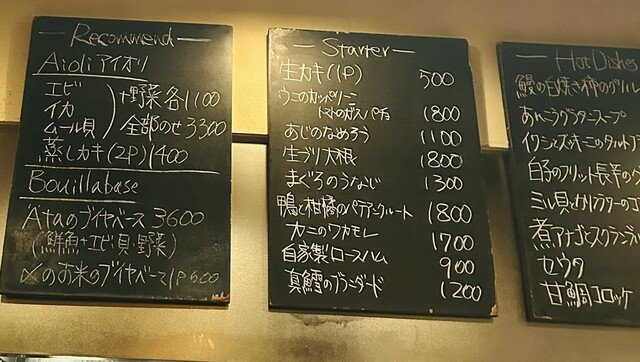 Recommend
Aioli アイオリ
エビ
イカ
ムール貝
+野菜 各1100
全部のせ 3300
蒸しカキ(2P) 1400
Bouillabase
Ataのブイヤベース 3600
(鮮魚+エビ・貝・野菜)
〆のお米のブイヤベース 1P 600
Starter
生カキ(1P) 500
ウニのカッペリーニ
トマトのガスパチョ 1800
あじのなめろう 1100
生ブリ大根 1800
まぐろのうなじ 1300
鴨と柑橘のパテアンクルート 1800
カニのワカモレ 1700
自家製ロースハム 900
真鱈のブランダード 1200
Hot Dishes
鰻の白焼き 柿のグリル
あんこうグラタンスープ
イワシとズッキーニのタルト
白子のフリット 長芋の
ミル貝と
煮アナゴとスクランブル
セウタ
甘鯛コロッケ